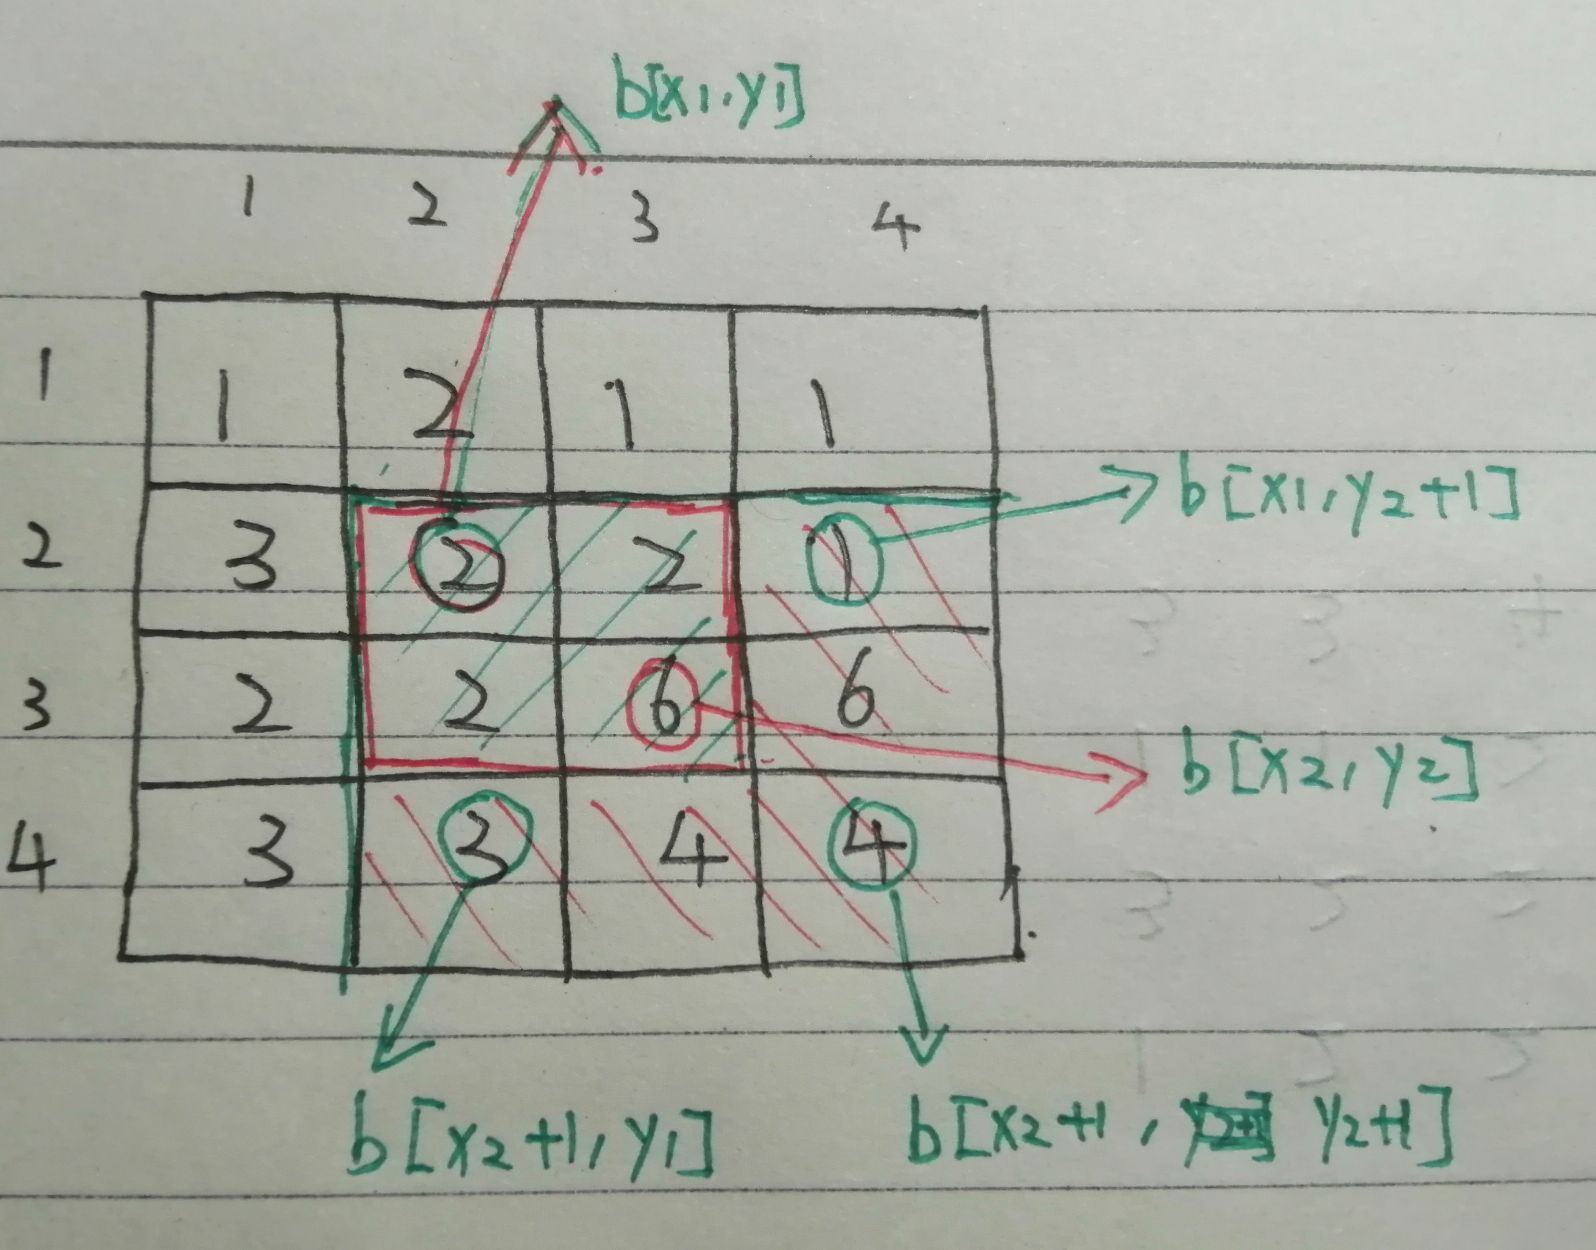 b[x1,y1]
1 2 3 4
1 1 2 1 1
2 3 2 2 1 b[x1,y2+1]
3 2 2 6 6
b[x2,y2]
4 3 3 4 4
b[x2+1,y1] b[x2+1, y2+1]